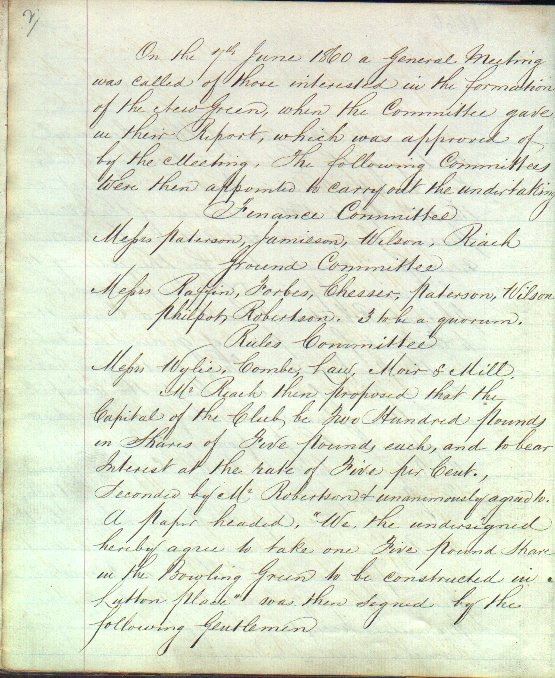 2/
On the 7th June 1860 a General Meeting
was called of those interested in the formation
of the New Green, when the Committee gave
in their Report, which was approved of
by the Meeting. The following Committees
Were then appointed to carry out the undertaking
Finance Committee
Messrs Paterson, Jamieson, Wilson, Riach
Ground Committee
Messrs Forbes, Chesser, Paterson, Wilson
Philpot, Robertson. 3 to be a quorum.
Rules Committee
Messrs Wylie, Combe, Law, Moir & Mill.
Mr Riach then proposed that the
Capital of the Club be Two Hundred pounds
in Shares of Five pounds each, and to bear
Interest at the rate of Five per Cent.,
Seconded by Mr Robertson & unanimously agreed to.
A paper headed, "We the undersigned
hereby agree to take one Five pound Share
in the Bowling Green to be constructed in
Lutton place" was then signed by the
following Gentlemen